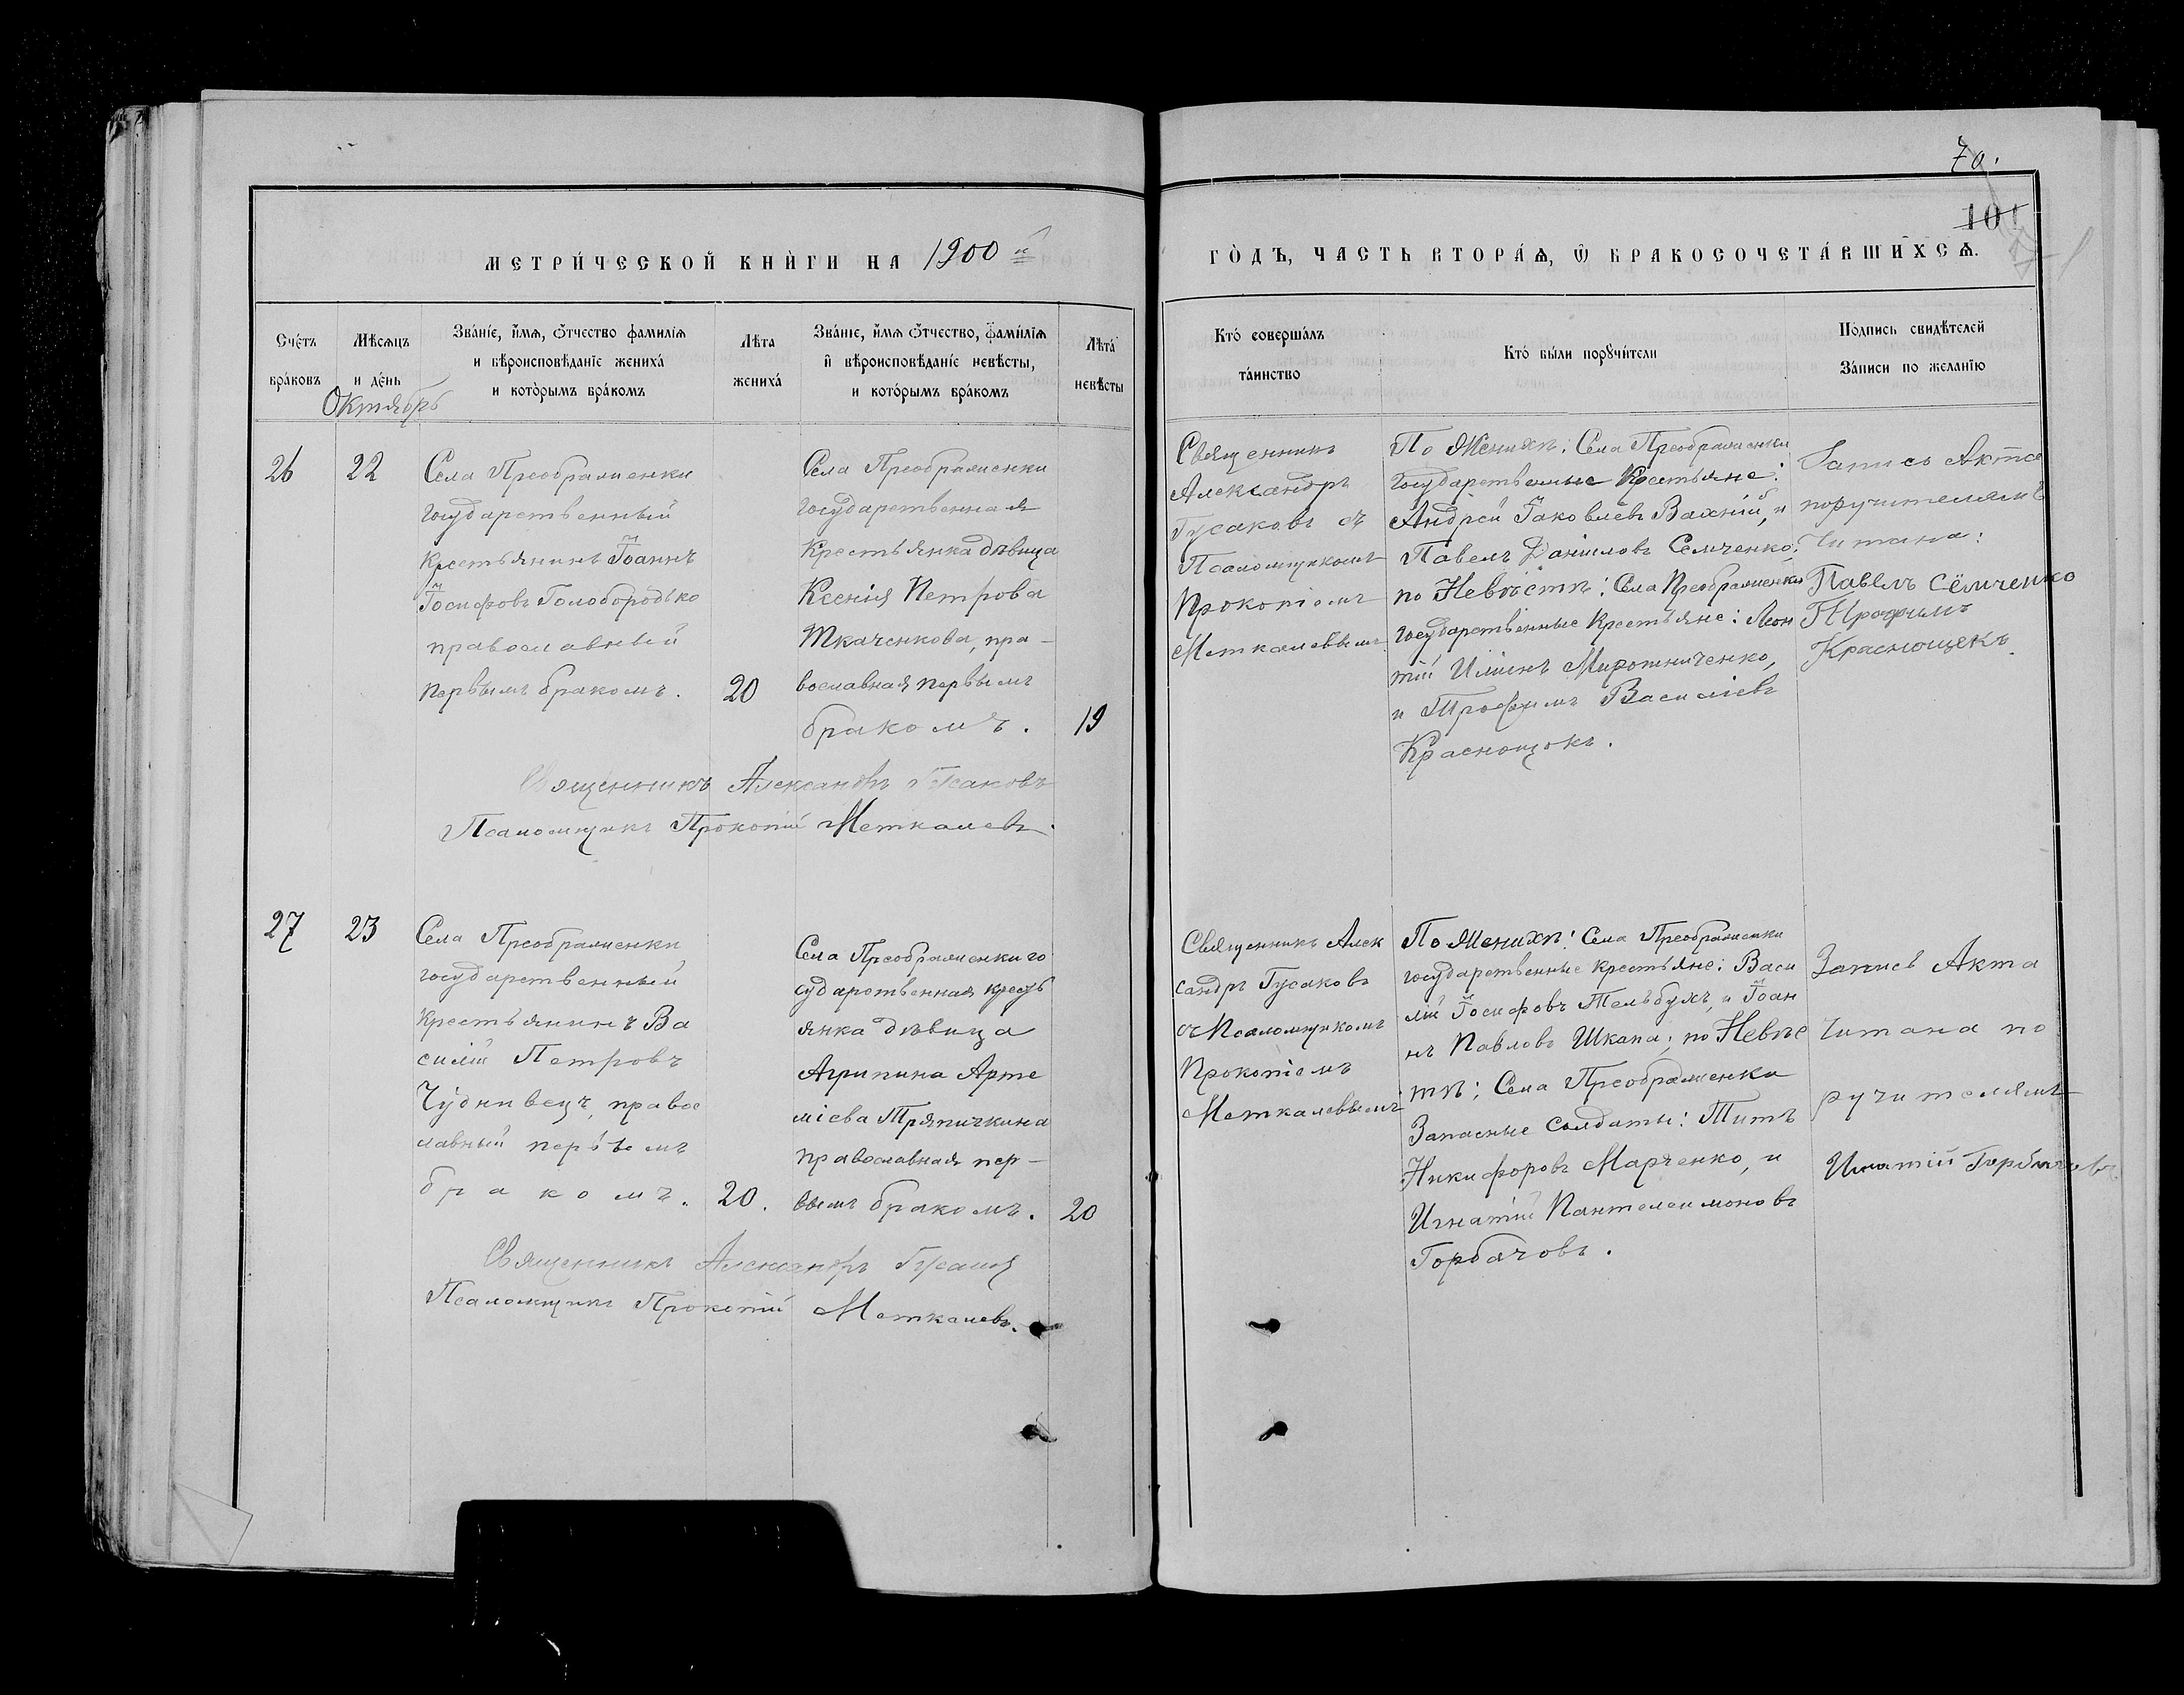 70.
101
МЕТРИ́ЧЕСКОЙ КНИ́ГИ НА 1900 й
ГО́ДЪ, ЧАСТЬ ВТОРА́Ѧ, Ѡ҆ БРАКОСОЧЕТА́ВШИХСѦ.
Сче́тъ
бра́ковъ
Мѣ́сѧцъ
и де́нь
Октябрь
Зва́нїе, и҆́мѧ, ѻ҆́тчество фамилїѧ
и вѣроисповѣ́данїе жениха́
и кото́рымъ бра́комъ
Лѣ́та
жениха́
Зва́нїе, и҆́мѧ ѻ҆́тчество, фами́лїѧ
и҆ вѣроисповѣ́данїе невѣ́сты,
и кото́рымъ бра́комъ
Лѣ́та
невѣ́сты
Кто́ соверша́лъ
та́инство
Кто́ бы́ли порꙋчи́тели
По́дпись свидѣ́телей
За́писи по жела́нїю
26
22
Села Преображенки
государственный
крестьянинъ Іоаннъ
Іосифовъ Голобородько
православный
первымъ бракомъ.
20
Села Преображенки
государственная
крестьянка дѣвица
Ксенія Петрова
Ткаченкова, пра-
вославная первымъ
бракомъ.
19
Священникъ Александръ Гусаковъ
Псаломщикъ Прокопій Меткалевъ.
Священникъ
Александръ
Гусаковъ съ
Псаломщикомъ
Прокопіемъ
Меткалевымъ
По Женихѣ: Села Преображенки
государственные Крестьяне:
Андрей Іаковлевъ Вахній, и
Павелъ Даніиловъ Семченко;
по Невѣстѣ: Села Преображенки
государственные крестьяне: Леон
тій Мирошниченко,
и Трофимъ Василіевъ
Краснощокъ.
Запись Акта
поручителямъ
Читана:
Павелъ Сёмченко
Трофимъ
Краснощекъ.
27
23
Села Преображенки
государственный
крестьянинъ Ва
силій Петровъ
Чуднивецъ, правос
лавный первымъ
бракомъ.
20.
Села Преображенки го
сударственная кресть
янка дѣвица
Агрипина Арте
міева Тряпичкина
православная пер-
вымъ бракомъ.
20
Священникъ Александръ Гусаковъ
Псаломщикъ Прокопій Меткалевъ.
Священникъ Алек
сандръ Гусаковъ
съ Псаломщикомъ
Прокопіемъ
Меткалевымъ
По Женихѣ: Села Преображенки
государственные крестьяне: Васи
лій Іосифовъ Тельбухъ, и Іоан
нъ Павловъ Шкапа; по Невѣс
тѣ: Села Преображенки
Запасные Солдаты: Титъ
Никифоровъ Марченко, и
Игнатій Пантелеимоновъ
Горбачовъ.
Запись Акта
Читана по
ручителямъ
Игнатій Горбачовъ